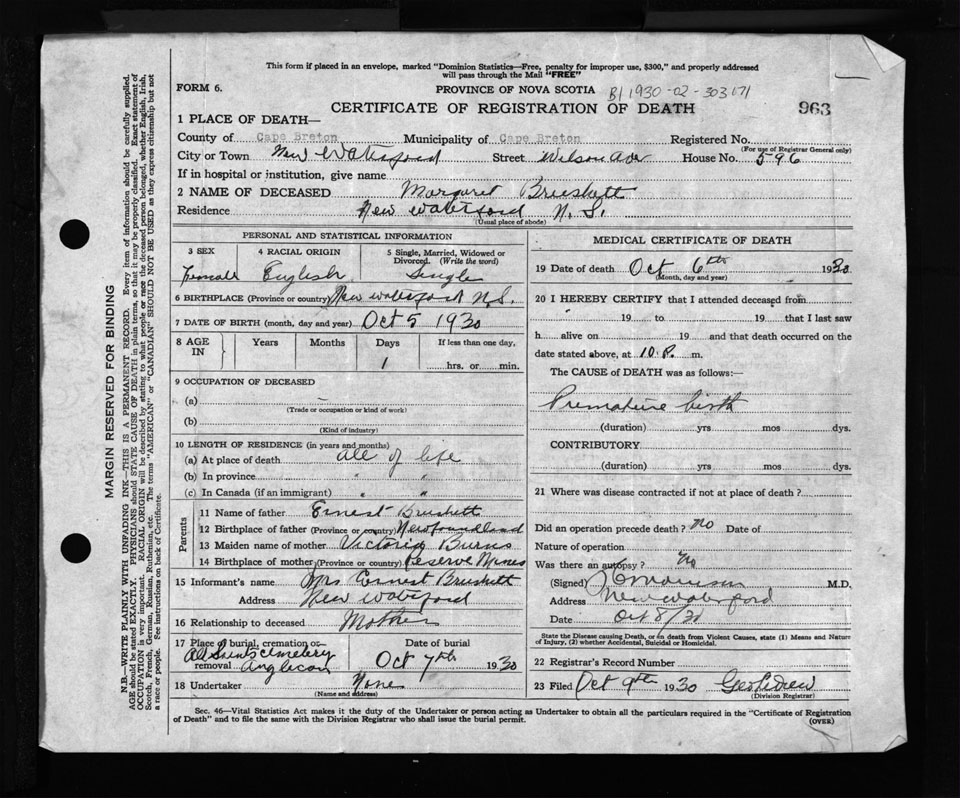 This form if placed in an envelope, marked "Dominion Statistics—Free, penalty for improper use, $300," and properly addressed
will pass through the Mail "FREE"
FORM 6.
PROVINCE OF NOVA SCOTIA
B/1930-02-303171
CERTIFICATE OF REGISTRATION OF DEATH
963
1 PLACE OF DEATH—
County of Cape Breton Municipality of Cape Breton Registered No.
(For use of Registrar General only)
City or Town New Waterford Street Wilson Ave House No. 596
If in hospital or institution, give name
2 NAME OF DECEASED Margaret Bruskett
Residence New Waterford N.S.
(Usual place of abode)
PERSONAL AND STATISTICAL INFORMATION
3 SEX 4 RACIAL ORIGIN 5 Single, Married, Widowed or
Divorced. (Write the word)
Female English Single
6 BIRTHPLACE (Province or country) New Waterford N.S.
7 DATE OF BIRTH (month, day and year) Oct 5 1930
8 AGE IN Years Months Days If less than one day,
1 hrs. or min.
9 OCCUPATION OF DECEASED
(a) –
(Trade or occupation or kind of work)
(b)
(Kind of industry)
10 LENGTH OF RESIDENCE (in years and months)
(a) At place of death all of life
(b) In province " "
(c) In Canada (if an immigrant) " "
Parents
11 Name of father Ernest Bruskett
12 Birthplace of father (Province or country) Newfoundland
13 Maiden name of mother Victoria Burns
14 Birthplace of mother (Province or country) Reserve Mines
15 Informant's name Mrs Ernest Bruskett
Address New Waterford
16 Relationship to deceased Mother
17 Place of burial, cremation or Date of burial
All Saints Cemetery
removal Anglican Oct 7th 1930
18 Undertaker None
(Name and address)
MEDICAL CERTIFICATE OF DEATH
19 Date of death Oct 6th 1930
(Month, day and year)
20 I HEREBY CERTIFY that I attended deceased from
19 to 19 that I last saw
h alive on 19 and that death occurred on the
date stated above, at 10.P. m.
The CAUSE of DEATH was as follows:—
Premature birth
(duration) yrs mos dys.
CONTRIBUTORY
(duration) yrs mos dys.
21 Where was disease contracted if not at place of death?
Did an operation precede death? No Date of
Nature of operation
Was there an autopsy? No
(Signed) M.D.
Address New Waterford
Date Oct 8/30
State the Disease causing Death, or in death from Violent Causes, state (1) Means and Nature
of Injury, (2) whether Accidental, Suicidal or Homicidal.
22 Registrar's Record Number
23 Filed Oct 9th 1930
(Division Registrar)
Sec. 46—Vital Statistics Act makes it the duty of the Undertaker or person acting as Undertaker to obtain all the particulars required in the "Certificate of Registration
of Death" and to file the same with the Division Registrar who shall issue the burial permit.
(OVER)
MARGIN RESERVED FOR BINDING
N.B.—WRITE PLAINLY WITH UNFADING INK—THIS IS A PERMANENT RECORD. Every item of information should be carefully supplied.
AGE should be stated EXACTLY. PHYSICIANS should STATE CAUSE OF DEATH in plain terms, so that it may be properly classified. Exact statement of
OCCUPATION is very important. RACIAL ORIGIN will be described by stating to what people or race the deceased person belonged, whether English, Irish,
Scotch, French, German, Russian, Ruthenian, etc. The terms "AMERICAN" or "CANADIAN" SHOULD NOT BE USED as they express citizenship but not
a race or people. See instructions on back of Certificate.